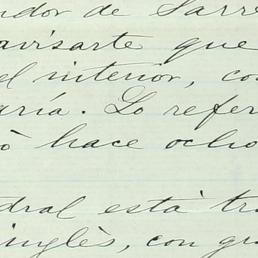 ndor de Sarre
avisarte que
el interior, co
aría. Lo refer
ò hace ocho
dral està tra
inglès, con gra